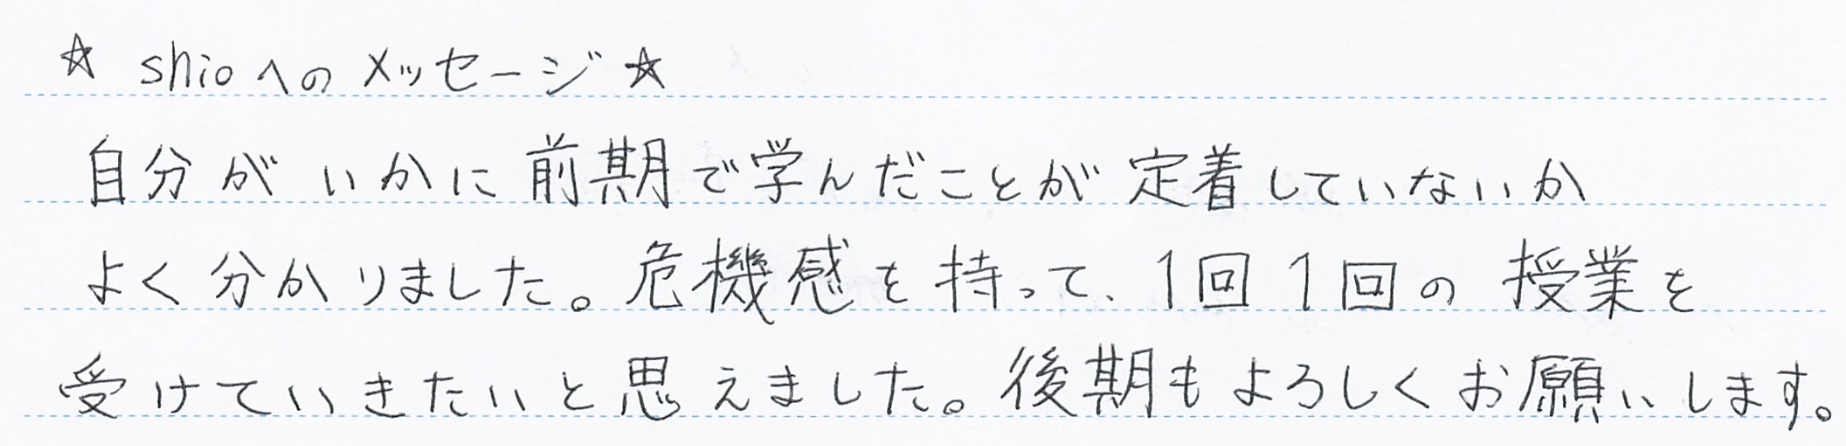 ☆ shioへのメッセージ☆
自分がいかに前期で学んだことが定着していないか
よく分かりました。危機感を持って、1回1回の授業を
受けていきたいと思えました。後期もよろしくお願いします。